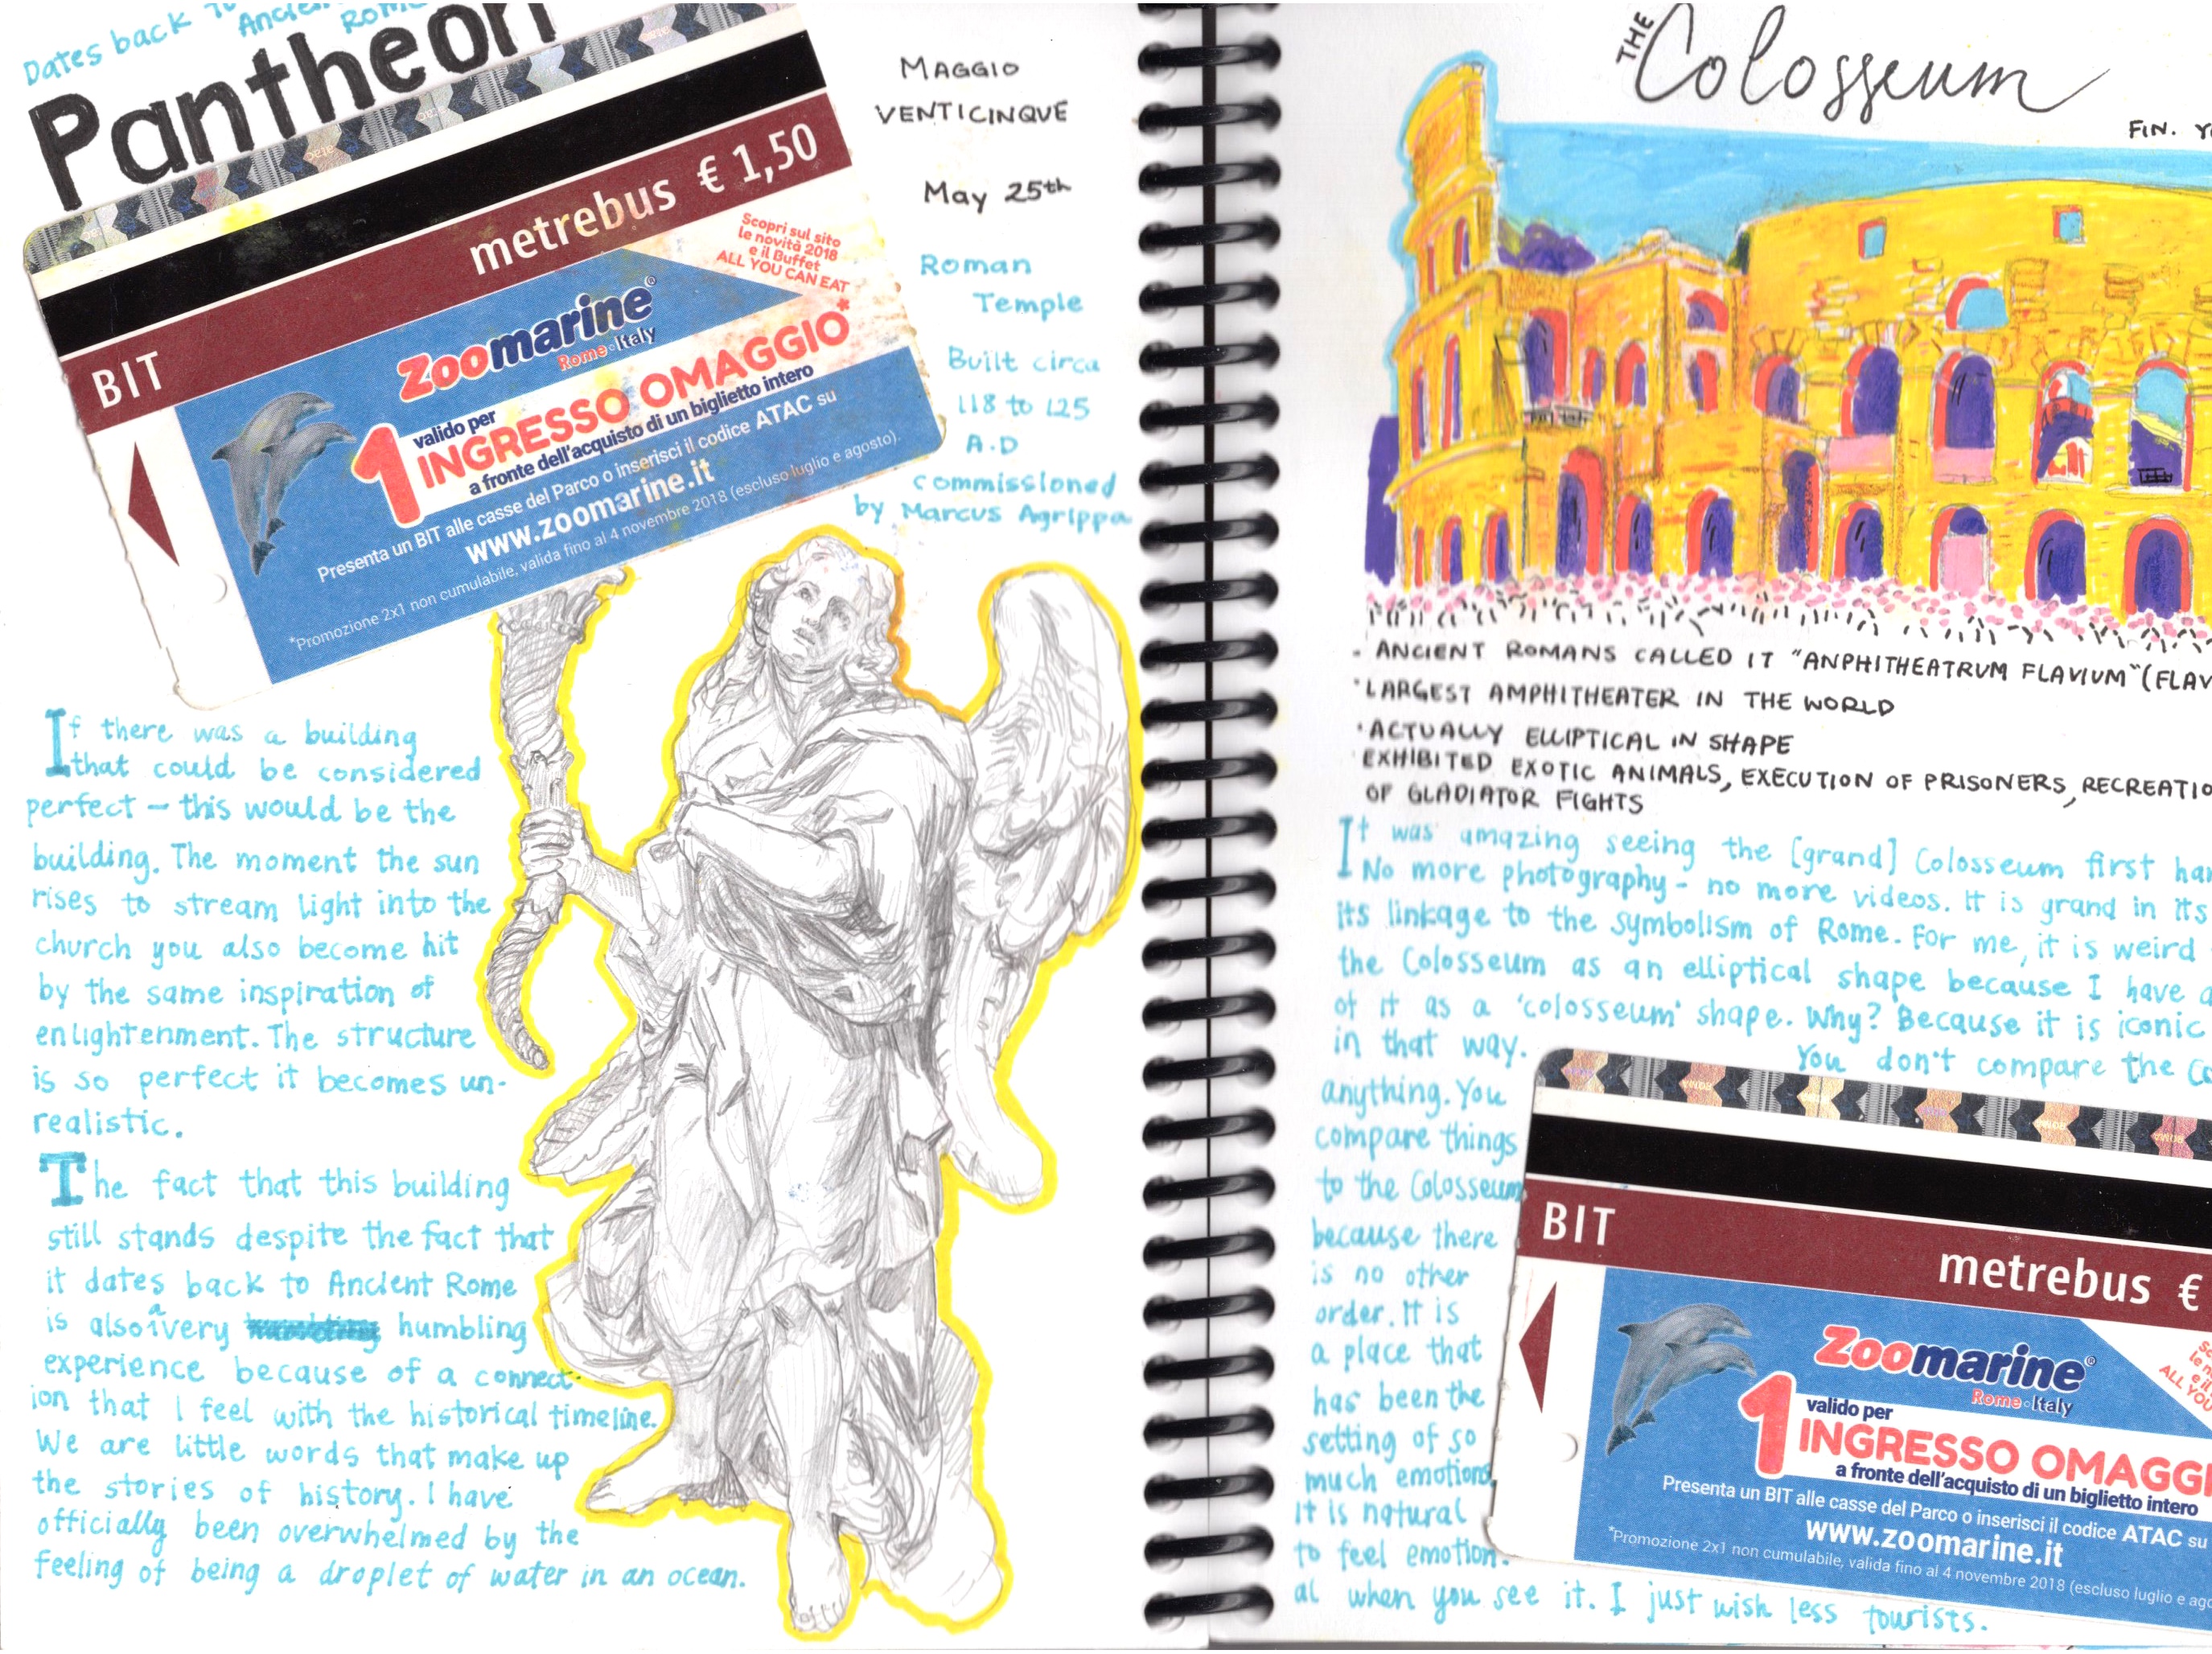 Dates back to
Ancient
Rome
Pantheon
metrebus € 1,50
BIT
Scopri sul sito
le novità 2018
e il Buffet
ALL YOU CAN EAT
Zoomarine®
Rome Italy
1 valido per
INGRESSO OMAGGIO*
a fronte dell'acquisto di un biglietto intero
Presenta un BIT alle casse del Parco o inserisci il codice ATAC su
www.zoomarine.it
*Promozione 2x1 non cumulabile, valida fino al 4 novembre 2018 (escluso luglio e agosto).
MAGGIO
VENTICINQUE
May 25th
Roman
Temple
Built circa
118 to 125
A.D
commissioned
by Marcus Agrippa
If there was a building
that could be considered
perfect — this would be the
building. The moment the sun
rises to stream light into the
church you also become hit
by the same inspiration of
enlightenment. The structure
is so perfect it becomes un-
realistic.
The fact that this building
still stands despite the fact that
it dates back to Ancient Rome
is also a very humbling
experience because of a connect-
ion that I feel with the historical timeline.
We are little words that make up
the stories of history. I have
officially been overwhelmed by the
feeling of being a droplet of water in an ocean.
THE Colosseum
FIN.
- ANCIENT ROMANS CALLED IT "ANPHITHEATRVM FLAVIVM" (FLAV
· LARGEST AMPHITHEATER IN THE WORLD
· ACTUALLY ELLIPTICAL IN SHAPE
EXHIBITED EXOTIC ANIMALS, EXECUTION OF PRISONERS, RECREATIO
OF GLADIATOR FIGHTS
It was amazing seeing the [grand] Colosseum first ha
No more photography - no more videos. It is grand in its
its linkage to the symbolism of Rome. For me, it is weird
the Colosseum as an elliptical shape because I have a
of it as a 'colosseum' shape. Why? Because it is iconic
in that way. You don't compare the Co
anything. You
compare things
to the Colosseum
because there
is no other
order. It is
a place that
has been the
setting of so
much emotions
it is natural
to feel emotion-
al when you see it. I just wish less tourists.
BIT
metrebus €
ALL YOU
Zoomarine®
Rome Italy
1 valido per
INGRESSO OMAGGI
a fronte dell'acquisto di un biglietto intero
Presenta un BIT alle casse del Parco o inserisci il codice ATAC su
www.zoomarine.it
*Promozione 2x1 non cumulabile, valida fino al 4 novembre 2018 (escluso luglio e ago